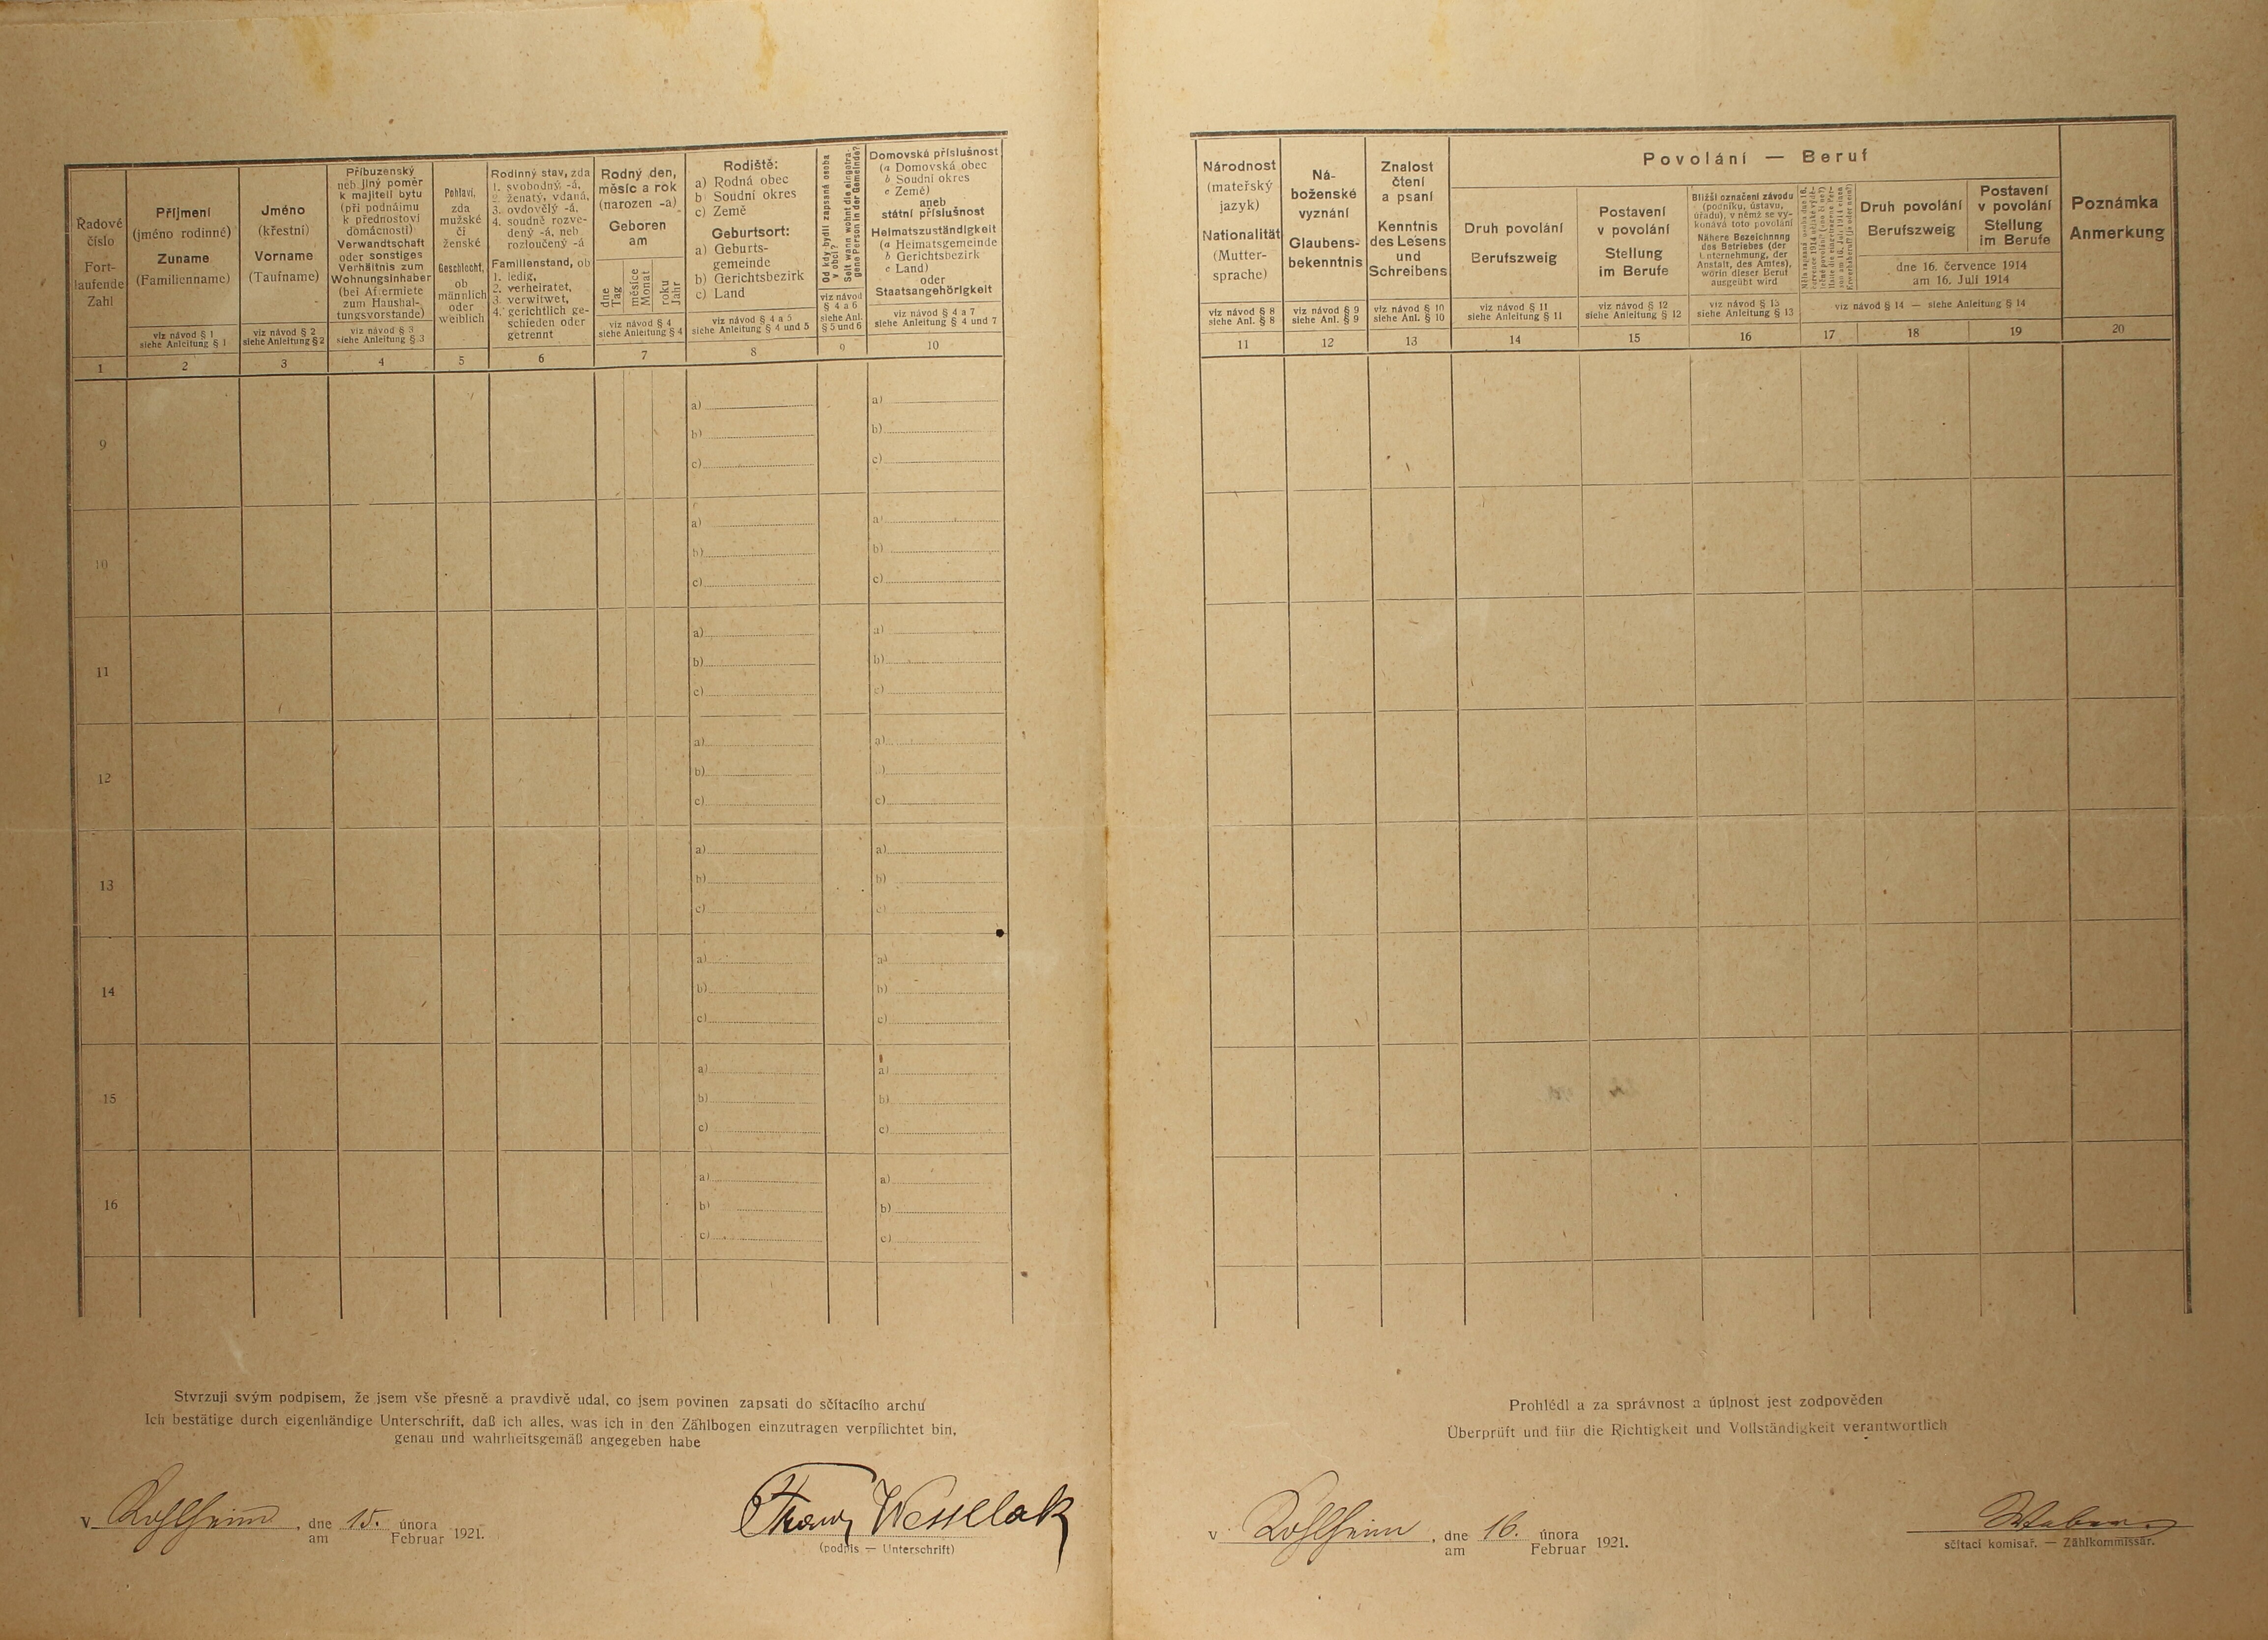 Řadové
číslo
Fort-
laufende
Zahl
1
Příjmení
(jméno rodinné)
Zuname
(Familienname)
viz návod § 1
siehe Anleitung § 1
2
Jméno
(křestní)
Vorname
(Taufname)
viz návod § 2
siehe Anleitung § 2
3
Příbuzenský
neb jiný poměr
k majiteli bytu
(při podnájmu
k přednostovi
domácnosti)
Verwandtschaft
oder sonstiges
Verhältnis zum
Wohnungsinhaber
(bei Aftermiete
zum Haushal-
tungsvorstande)
viz návod § 3
siehe Anleitung § 3
4
Pohlaví,
zda
mužské
či
ženské
Geschlecht,
ob
männlich
oder
weiblich
5
Rodinný stav, zda
1. svobodný, -á,
2. ženatý, vdaná,
3. ovdovělý -á,
4. soudně rozve-
dený -á, neb
rozloučený -á
Familienstand, ob
1. ledig,
2. verheiratet,
3. verwitwet,
4. gerichtlich ge-
schieden oder
getrennt
6
Rodný den,
měsíc a rok
(narozen -a)
Geboren
am
dne
Tag
měsíce
Monat
roku
Jahr
viz návod § 4
siehe Anleitung § 4
7
Rodiště:
a) Rodná obec
b) Soudní okres
c) Země
Geburtsort:
a) Geburts-
gemeinde
b) Gerichtsbezirk
c) Land
viz návod § 4 a 5
siehe Anleitung § 4 und 5
8
Od kdy bydlí zapsaná osoba
v obci?
Seit wann wohnt die eingetra-
gene Person in der Gemeinde?
viz návod
§ 4 a 6
siehe Anl.
§ 5 und 6
9
Domovská příslušnost
(a Domovská obec
b Soudní okres
c Země)
aneb
státní příslušnost
Heimatszuständigkeit
(a Heimatsgemeinde
b Gerichtsbezirk
c Land)
oder
Staatsangehörigkeit
viz návod § 4 a 7
siehe Anleitung § 4 und 7
10
Národnost
(mateřský
jazyk)
Nationalität
(Mutter-
sprache)
viz návod § 8
siehe Anl. § 8
11
Ná-
boženské
vyznání
Glaubens-
bekenntnis
viz návod § 9
siehe Anl. § 9
12
Znalost
čtení
a psaní
Kenntnis
des Lesens
und
Schreibens
viz návod § 10
siehe Anl. § 10
13
Povolání — Beruf
Druh povolání
Berufszweig
viz návod § 11
siehe Anleitung § 11
14
Postavení
v povolání
Stellung
im Berufe
viz návod § 12
siehe Anleitung § 12
15
Bližší označení závodu
(podniku, ústavu,
úřadu), v němž se vy-
konává toto povolání
Nähere Bezeichnung
des Betriebes (der
Unternehmung, der
Anstalt, des Amtes),
worin dieser Beruf
ausgeübt wird
viz návod § 13
siehe Anleitung § 13
16
17
Druh povolání
Berufszweig
Postavení
v povolání
Stellung
im Berufe
dne 16. července 1914
am 16. Juli 1914
viz návod § 14 — siehe Anleitung § 14
18
19
Poznámka
Anmerkung
20
9
a)
b)
c)
a)
b)
c)
10
a)
b)
c)
a)
b)
c)
11
a)
b)
c)
a)
b)
c)
12
a)
b)
c)
a)
c)
13
a)
b)
c)
a)
b)
c)
14
a)
b)
c)
a)
b)
c)
15
a)
b)
c)
a)
b)
c)
16
a)
b)
c)
a)
b)
c)
Stvrzuji svým podpisem, že jsem vše přesně a pravdivě udal, co jsem povinen zapsati do sčítacího archu
Ich bestätige durch eigenhändige Unterschrift, daß ich alles, was ich in den Zählbogen einzutragen verpflichtet bin,
genau und wahrheitsgemäß angegeben habe
v Kohlheim, dne 15. února 1921.
am Februar
Franz Wesselak
(podpis — Unterschrift)
Prohlédl a za správnost a úplnost jest zodpověden
Überprüft und für die Richtigkeit und Vollständigkeit verantwortlich
v Kohlheim, dne 16. února 1921.
am Februar
Weber
sčítací komisař. — Zählkommissär.